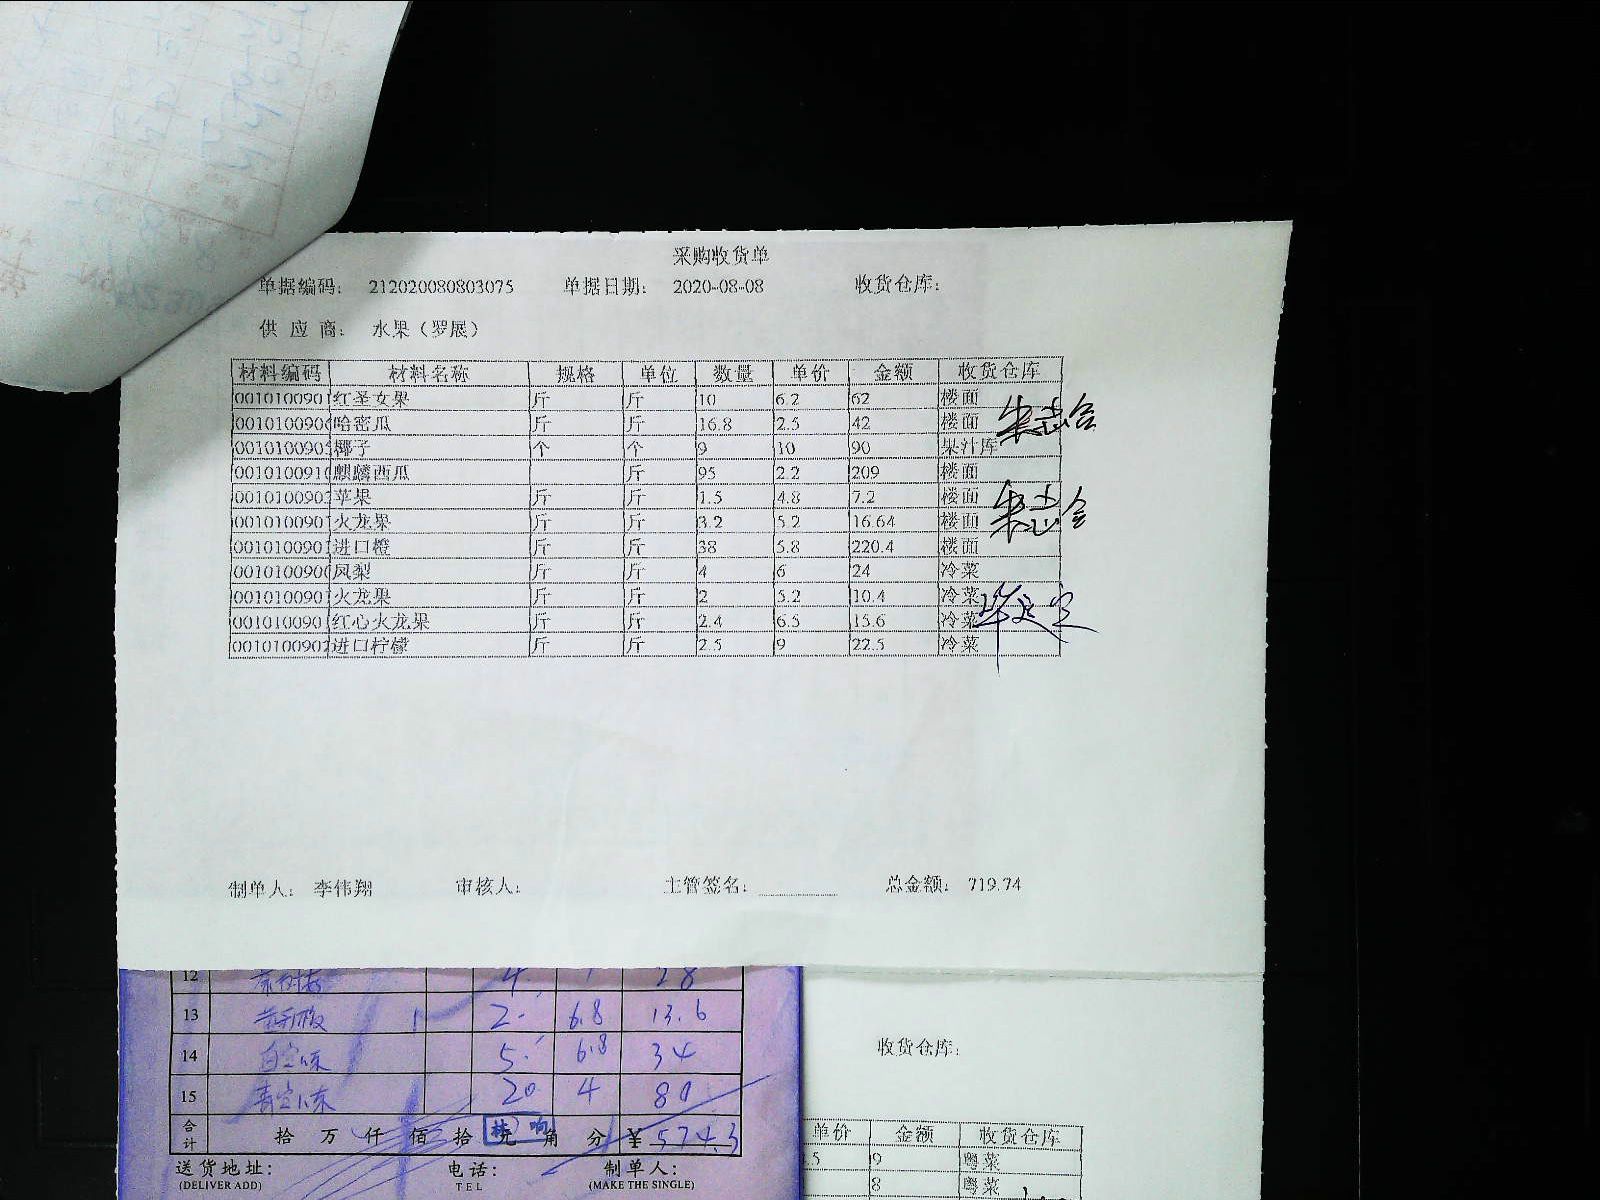 采购收货单
单据编码： 212020080803075 单据日期： 2020-08-08 收货仓库：
供 应 商： 水果（罗展）
材料编码 材料名称 规格 单位 数量 单价 金额 收货仓库
001010090 红圣女果 斤 斤 10 6.2 62 楼面
001010090 哈密瓜 斤 斤 16.8 2.5 42 楼面
001010090 椰子 个 个 9 10 90 果汁库
001010091 麒麟西瓜 斤 95 2.2 209 楼面
001010090 苹果 斤 斤 1.5 4.8 7.2 楼面
001010090 火龙果 斤 斤 3.2 5.2 16.64 楼面
001010090 进口橙 斤 斤 38 5.8 220.4 楼面
001010090 凤梨 斤 斤 4 6 24 冷菜
001010090 火龙果 斤 斤 2 5.2 10.4 冷菜
001010090 红心火龙果 斤 斤 2.4 6.5 15.6 冷菜
001010090 进口柠檬 斤 斤 2.5 9 22.5 冷菜
制单人： 李伟翔 审核人： 主管签名： 总金额： 719.74
12 4 28
13 2 6.8 13.6
14 5 6.8 34
15 20 4 80
合计 拾 万 仟 佰 拾 元 角 分 ¥ 574.3
送货地址： 电话： 制单人：
(DELIVER ADD) TEL (MAKE THE SINGLE)
收货仓库：
单价 金额 收货仓库
.5 9 粤菜
8 粤菜